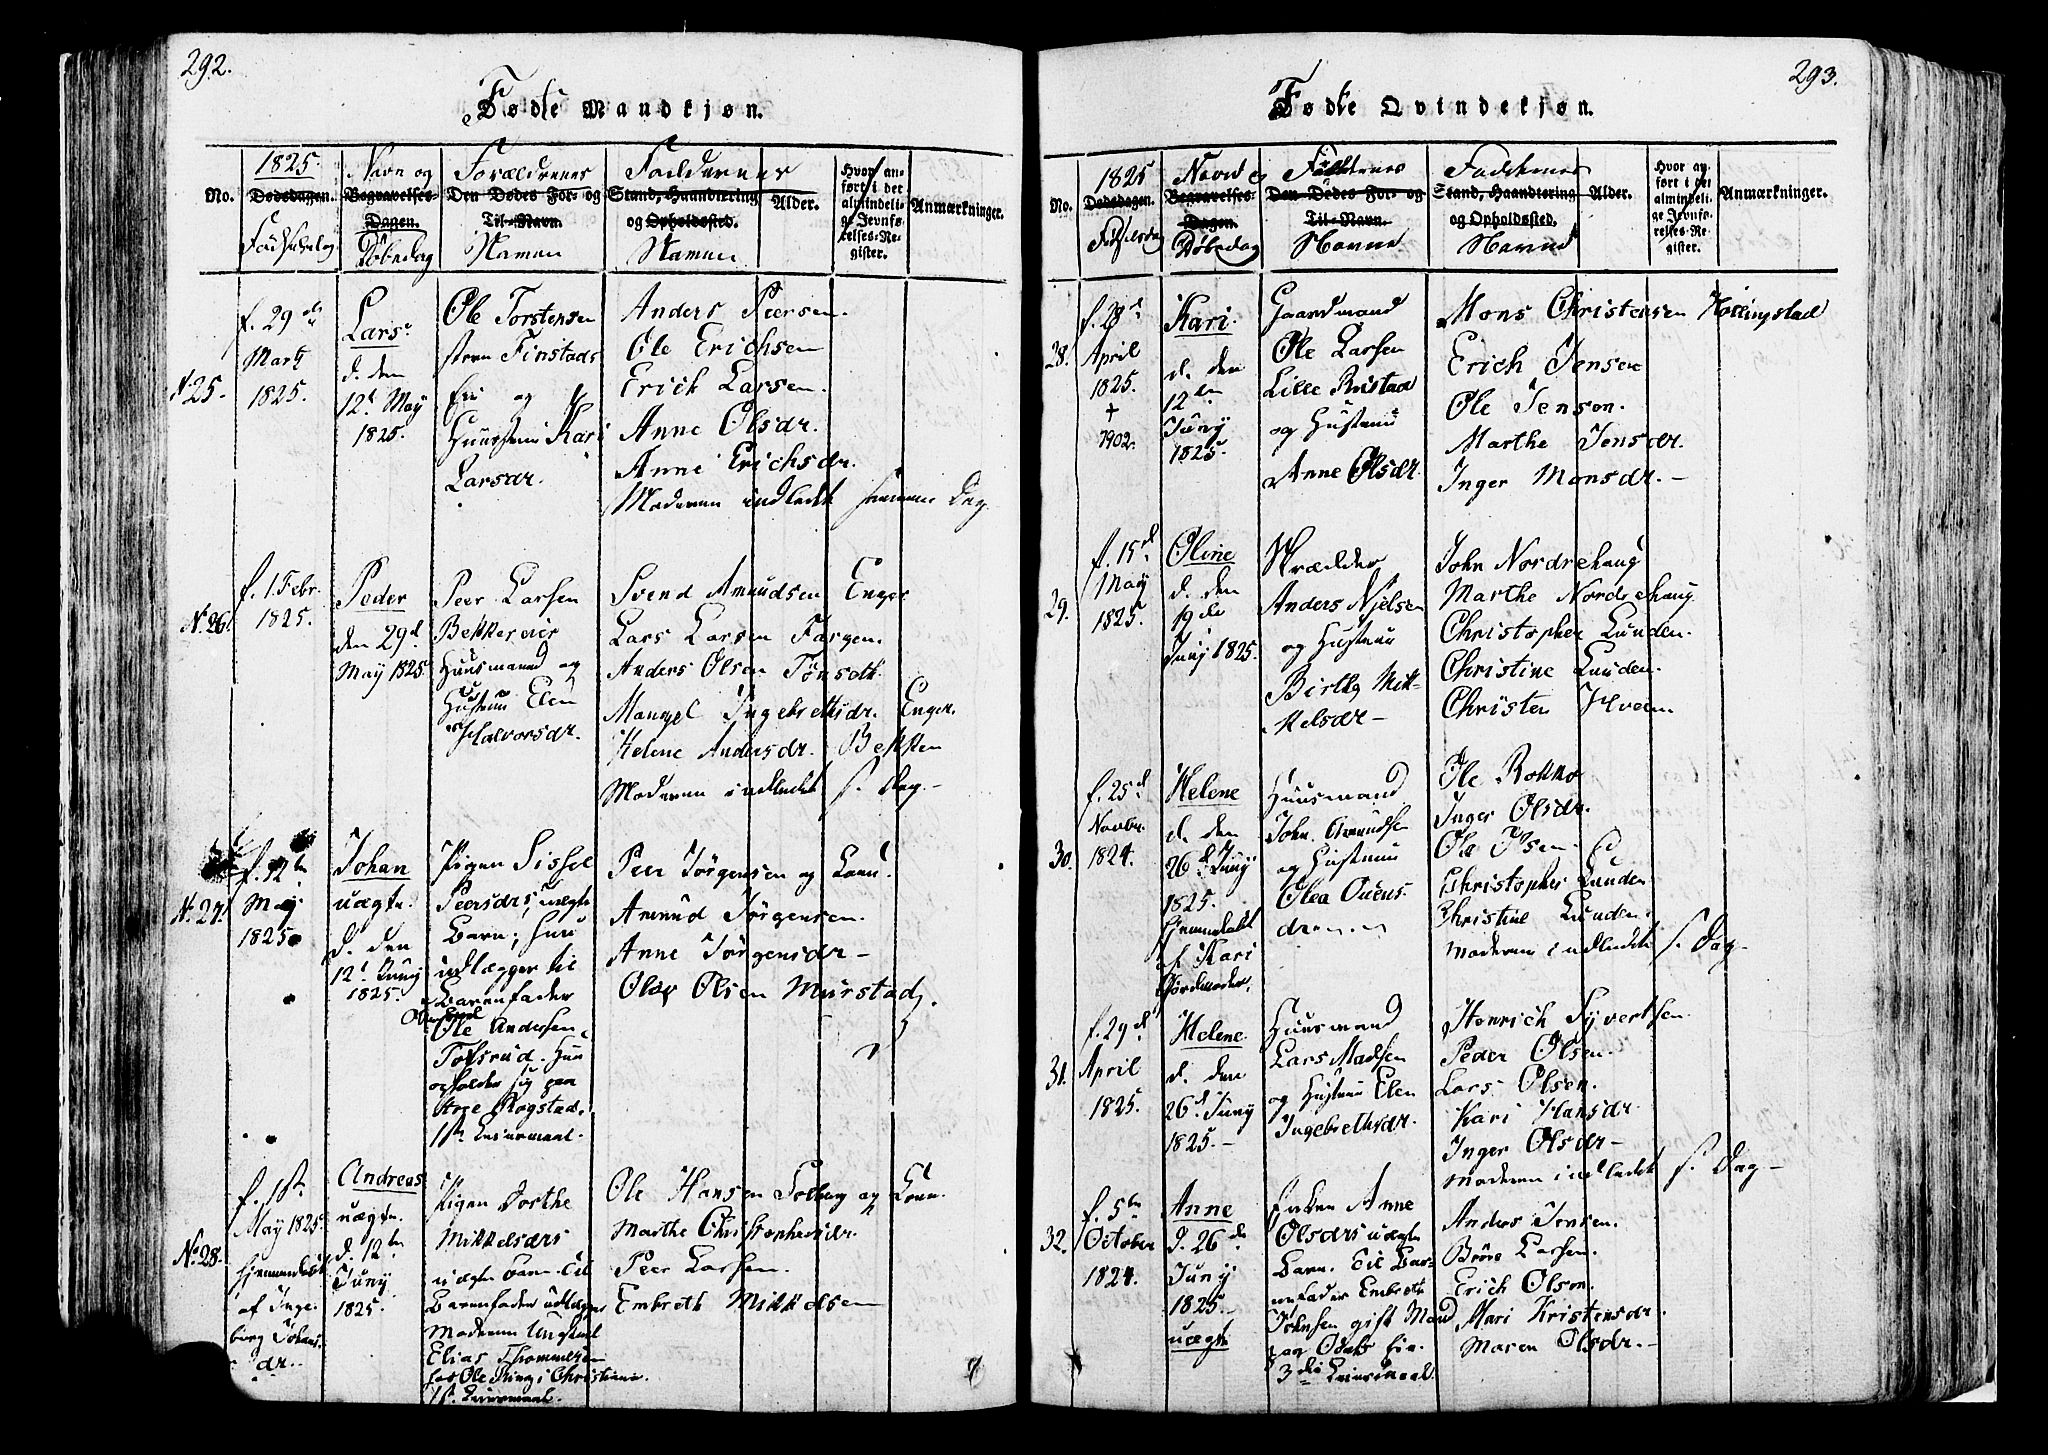 292.
Føde Mandkjøn.
1825. Navn og Forældrenes Faddernes
No. Dødsdagen. Begravelses-Dagen. Den Dødes For- og Til-Navn. Stand, Haandtering og Opholdssted. Alder. Hvor anført i det almindelige Jevnførelses-Register. Anmærkninger.
Døbedag
N. 25.
f. 29de
Martz
1825.
Lars.
d. den
12t May
1825.
Ole Torstensen
Finstads
Eie og
Kari
Larsdr.
Anders Peersen.
Ole Erichsen
Erich Larsen.
Anne Olsdr.
Anne Erichsdr.
Moderen indledt samme Dag
N. 26.
f. 1. Febr.
1825.
Peder
den 29d
May 1825.
Peer Larsen
Huusmand og
Hustrue Elen
Halvorsdr.
Svend Amundsen Enger
Lars Larsen Fargen.
Anders Olsen Tønseth
Ingebrethsdr. Enger.
Helene Andersdr. Bekken
Moderen indledet s. Dag.
N. 27.
f. 12te
May
1825
Johan
uægte.
d. den
12t Juny
1825.
Pigen Sissel
Peersdrs uægte
Barn; hun
udlægger til
Barnefader
Ole Andersen
Tolsrud. Hun
opholder sig paa
Rogstad.
1ste Leiermaal.
Peer Jørgensen og Kone.
Amund Jørgensen.
Anne Jørgensdr.
Olsen Murstad.
No. 28.
f. 1ste
May 1825
hjemmedøbt
af Inge-
borg Johans-
dr.
Andreas
uægte.
d. 12te
Juny
1825.
Pigen Dorthe
Mikkelsdrs
uægte Barn. Til
Barnefader udlægger
Moderen Ungkarl
Elias Thommesen
hos Ole Ring i Christiania.
1st. Leiermaal.
Ole Hansen Solberg og Kone.
Marthe Christophersdr.
Peer Larsen.
Embreth Mikkelsen
293.
Fødte Qvindekjøn.
1825 Faddernes
No. Dødsdagen. Begravelses-Dagen. Den Dødes For- og Til-Navn. Stand, Haandtering og Opholdssted. Alder. Hvor anført i det almindelige Jevnførelses-Register. Anmærkninger.
Fødselsdag Døbedag Navne Navne
28.
April
1825.
+
1902.
Kari.
d. den
12te
Juny
1825.
Gaardmand
Ole Larsen
Lille
og Hustrue
Anne Olsdr.
Mons Christensen Høllingstad
Erich Jensen
Ole Jenson.
Marthe Jensdr.
Inger Monsdr.
29.
f. 15d
May
1825.
Oline
d. den
19de
Juny 1825.
Skrædder
Anders Nielsen
og Hustrue
Birthe Mik-
kelsdr
John Nordrehaug
Marthe Nordrehaug
Christopher Lunden.
Christine Lunden.
Christen Hveem.
30.
f. 25d
Novbr.
1824.
Helene
d. den
26d Juny
1825.
hjemmedøbt
af Kari
Jordmoder.
Huusmand
John Amundsen
og Hustrue
Olea
Ole Rokko
Inger Olsdr.
Christopher Lunden
Christine Lunden.
Moderen indledet s. Dag
31.
f. 29d
April
1825.
Helene.
d. den
26d Juny
1825.
Huusmand
Lars Madsen
og Hustrue Elen
Ingebrethsdr.
Henrich Syvertsen.
Peder Olsen.
Lars Olsen.
Kari Hansdr.
Inger Olsdr
Moderen indledet s. Dag
32.
f. 5te
October
1824.
Anne
d. 26de
Juny
1825.
uægte
Enken Anne
Olsdrs uægte
Barn. Til Bar-
nefader Embret
Johnsen gift Mand
paa
3die Leiermaal.
Anders Jensen.
Larsen.
Erich Olson.
Mari Kristensdr.
Maren Olsdr.